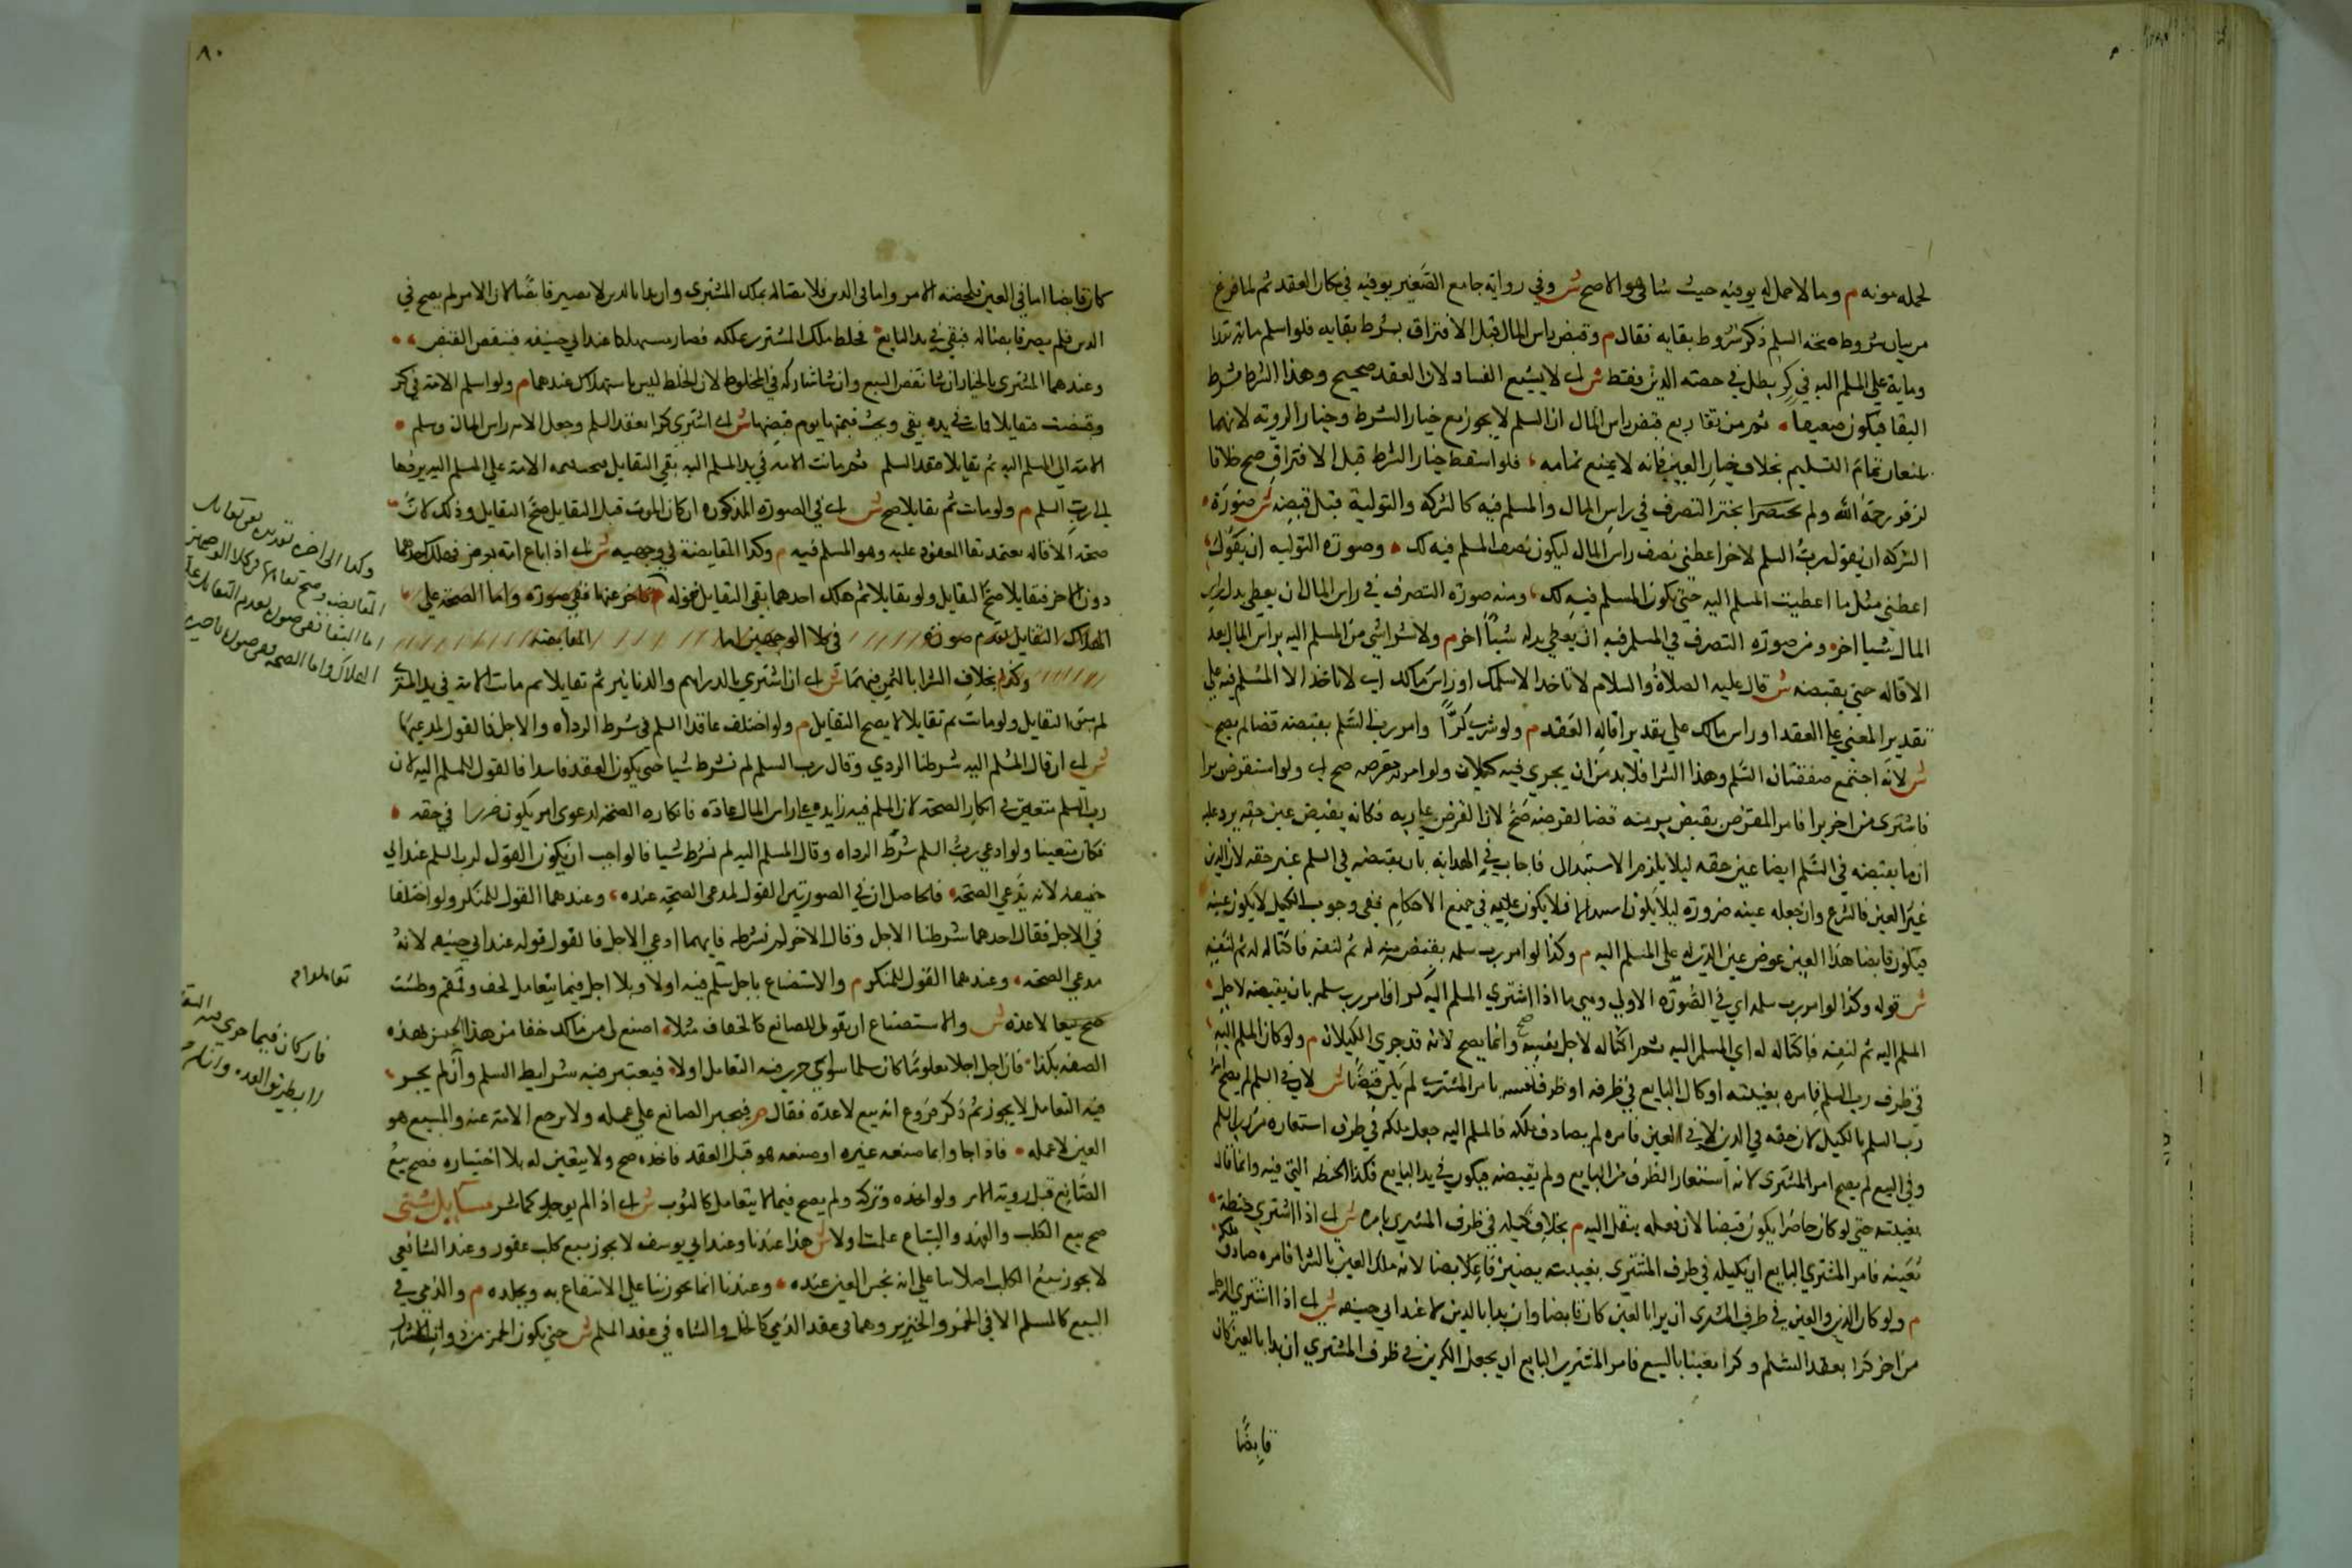 لحمله مونه م وما لا حمل له يوفيه حيث شا هو الاصح ش وفي رواية جامع الصغير يوفيه في مكان العقد ثم لما فرغ
من بيان شروط صحة السلم ذكر شروط بقايه فقال م وقبض راس المال قبل الافتراق بشرط بقايه فلو اسلم ماية نقدا
وماية علي المسلم اليه في كر بطل في حصة الدين فقط ش اي لا يشيع الفساد لان العقد صحيح وهذا الشرط شرط
البقا فيكون ضعيفا ثم من تفاريع قبض راس المال ان السلم لا يجوز مع خيار الشرط وخيار الروية لانهما
يمنعان تمام التسليم بخلاف خيار العيب فانه لا يمنع تمامه فلو اسقط خيار الشرط قبل الافتراق صح خلافا
لزفر رحمه الله ولم يجز التصرف في راس المال والمسلم فيه كالشركة والتولية قبل قبضه ش صورة
الشركة ان يقول رب السلم لاخر اعطني نصف راس المال ليكون نصف المسلم فيه لك وصورة التولية ان يقول
اعطني مثل ما اعطيت المسلم اليه حتي يكون المسلم فيه لك ومنه صورة التصرف في راس المال ان يعطي بدل راس
المال شيا اخر ومن صورة التصرف في المسلم فيه ان يعطي بدله شيئا اخر م ولا شرا شي من المسلم اليه براس المال بعد
الاقالة حتي يقبضه ش قال عليه الصلاة والسلام لا تاخذ الا سلمك او راس مالك اي لا تاخذ الا المسلم فيه علي
تقدير المضي علي العقد او راس مالك علي تقدير اقالة العقد م ولو شري كرا وامر رب السلم بقبضه قضا لم يصح
ش لانه اجتمع صفقتان السلم وهذا الشرا فلا بد من ان يجري فيه كيلان ولو امر مقرضه صح اي ولو استقرض برا
فاشتري من اخر برا فامر المقرض بقبض بره منه قضا لقرضه صح لان القرض عارية فكانه يقبض عين حقه يرد عليه
ان ما يقبضه في السلم ايضا عين حقه ليلا يلزم الاستبدال فاجاب في الهداية بان يقبضه في السلم غير حقه لان الدين
غير العين فالشرع وان جعله عينه ضرورة ليلا يكون استبدالا فلا يكون عينه في جميع الاحكام ففي وجوب الكيل لا يكون عينه
فيكون قابضا هذا العين عوض عين الدين له علي المسلم اليه م وكذا لو امر رب سلمه بقبض منه له ثم لنفسه فاكتاله له ثم لنفسه
ش قوله وكذا لو امر رب سلمه اي في الصورة الاولي وهي ما اذا اشتري المسلم اليه كرا فامر رب سلمه بان يقبضه لاجل
المسلم اليه ثم لنفسه فاكتاله له اي المسلم اليه ثم اكتاله لاجل نفسه صح وانما يصح لانه قد جري الكيلان م ولو كال المسلم اليه
في ظرف رب السلم بامره بغيبته او كال البايع في ظرفه او ظرف نفسه بامر المشتري لم يكن قبضا ش لان في السلم لم يصح امر
رب السلم بالكيل لان حقه في الدين لا في العين فامره لم يصادف ملكه فالمسلم اليه جعل ملكه في ظرف استعاره من رب السلم
وفي البيع لم يصح امر المشتري لانه استعار الظرف من البايع ولم يقبضه فيكون في يد البايع فكذا الحنطة التي فيه وانما قال
بغيبته حتي لو كان حاضرا يكون قبضا لان فعله ينقل اليه م بخلاف كيله في ظرف المشتري بامره ش اي اذا اشتري حنطة
معينة فامر المشتري البايع ان يكيله في ظرف المشتري بغيبته يصير قابضا لانه ملك العين بالشرا فامره صادف ملكه
م ولو كان الدين والعين في ظرف المشتري ان بدا بالعين كان قابضا وان بدا بالدين لا عند ابي حنيفه ش اي اذا اشتري الرجل
من اخر كرا بعقد السلم وكرا معينا بالبيع فامر المشتري البايع ان يجعل الكرين في ظرف المشتري ان بدا بالعين كان
قابضًا
٨٠
كان قابضا اما في العين فلصحة الامر واما في الدين فلاتصاله بملك المشتري وان بدا بالدين لا يصير قابضًا لان الامر لم يصح في
الدين فلم يصر قابضا له فبقي في يد البايع فخلط ملك المشتري بملكه فصار مستهلكا عند ابي حنيفه فينتقض القبض
وعندهما المشتري بالخيار ان شا نقض البيع وان شا شاركه في المخلوط لان الخلط ليس باستهلاك عندهما م ولو اسلم الامة في كر
وقبضت فتقايلا فماتت في يده بقي ويجب قيمتها يوم قبضها ش اي اشتري كرا بعقد السلم وجعل الامة راس المال وسلم
الامة الي المسلم اليه ثم تقايلا عقد السلم ثم ماتت الامة في يد المسلم اليه بقي التقايل فيجب قيمة الامة علي المسلم اليه يردها
الي رب السلم م ولو ماتت ثم تقايلا صح ش اي في الصورة المذكورة ان كان الموت قبل التقايل صح التقايل وذلك لان
صحة الاقالة يعتمد بقا المعقود عليه وهو المسلم فيه م وكذا المقايضة في وجهيه ش اي اذا باع امة بعرض فهلك احدهما
دون الاخر فتقايلا صح التقايل ولو تقايلا ثم هلك احدهما بقي التقايل
الهلاك التقايل في كلا الوجهين اما المقايضة
وكذا بخلاف الشرا بالثمن فيهما ش اي ان اشتري بالدراهم والدنانير ثم تقايلا ثم ماتت الامة في يد المشتري
لم يبق التقايل ولو ماتت ثم تقايلا لا يصح التقايل م ولو اختلف عاقدا السلم في شرط الرداة والاجل فالقول لمدعيهما
ش اي ان قال المسلم اليه شرطنا الردي وقال رب السلم لم نشرط شيا حتي يكون العقد فاسدا فالقول للمسلم اليه لان
رب السلم متعنت في انكار الصحة لان المسلم فيه زايد علي راس المال عادة فانكاره الصحة لدعوي امر يكون ضررا في حقه
فكان متعنتا ولو ادعي رب السلم شرط الرداه وقال المسلم اليه لم نشرط شيا فالواجب ان يكون القول لرب السلم عند ابي
حنيفة لانه يدعي الصحة فالحاصل ان في الصورتين القول لمدعي الصحة عنده وعندهما القول للمنكر ولو اختلفا
في الاجل فقال احدهما شرطنا الاجل وقال الاخر لم نشرطه فايهما ادعي الاجل فالقول قوله عند ابي حنيفه لانه
مدعي الصحة وعندهما القول للمنكر م والاستصناع باجل سلم فيه اولا وبلا اجل فيما يتعامل كخف وقمقم وطشت
صح بيعا لا عدة ش والاستصناع ان يقول للصانع كالخفاف مثلا اصنع لي من مالك خفا من هذا الجنس بهذه
الصفة بكذا فان اجل اجلا معلوما كان سلما سواء جري فيه التعامل اولا فيعتبر فيه شرايط السلم وان لم يجر
فيه التعامل لا يجوز ثم ذكر فروع انه بيع لا عدة فقال م فيجبر الصانع علي عمله ولا يرجع الامر عنه والمبيع هو
العين لا عمله فاذا جا وانما صنعه غيره او صنعه هو قبل العقد فاخذه صح ولا يتعين له بلا اختياره فصح بيع
الصانع قبل روية الامر ولو اخذه وتركه ولم يصح فيما لا يتعامل كالثوب ش اي اذا لم يوجل كما مر مسايل شتي
صح بيع الكلب والفهد والسباع علمت اولا ش هذا عندنا وعند ابي يوسف لا يجوز بيع كلب عقور وعند الشافعي
لا يجوز بيع الكلب اصلا بنا علي انه نجس العين عنده وعندنا انما يجوز بنا علي الانتفاع به وبجلده م والذمي في
البيع كالمسلم الا في الخمر والخنزير وهما في عقد الذمي كالخل والشاة في عقد المسلم ش حتي يكون الخمر من ذوات
المقايضه وصح تقايلها في كلا الوجهين
اما البقا ففي صورة تقدم التقايل علي
الهلاك واما الصحة ففي صورة تاخره
تعاملوا م
فان كان فيما جري فيه